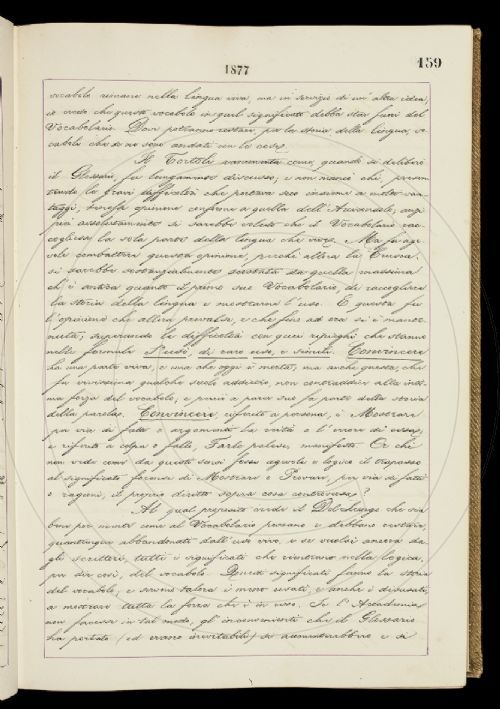 159
1877
vocabolo rimane nella lingua viva, ma in servizio di un'altra idea,
io credo che questo vocabolo in quel significato debba star fuori dal
Vocabolario. Dove potranno restare, per la storia della lingua, vo-
caboli che se ne sono andati con le cose.
Il Tortoli rammenta come, quando si deliberò
il Glossario, fu lungamente discusso, e non mancò chi, perseve-
rando le gravi difficoltà che portava seco insieme a molti van-
taggi, tenesse opinione conforme a quella dell'Arciconsolo, anzi
più assolutamente si sarebbe voluto che il Vocabolario rac-
cogliesse la sola parte della lingua che vive. Ma fu age-
vole combattere questa opinione, perchè allora la Crusca
si sarebbe sostanzialmente scostata da quella massima
ch'è antica quanto il primo suo Vocabolario, di raccogliere
la storia della lingua e mostrarne l'uso. E questa fu
l'opinione che allora prevalse, e che fino ad ora si è mante-
nuta, superando le difficoltà con quei ripieghi che stanno
nelle formule Si usò, di raro uso, e simili. Convincere
ha una parte viva, e una che oggi è morta, ma anche questa, che
fu vivissima qualche secolo addietro, non contraddice alla inti-
ma forza del vocabolo, e perciò a parer suo fa parte della storia
della parola. Convincere, riferito a persona, è Mostrare
per via di fatto o argomento la verità o l'errore di essa;
e riferito a colpa o fallo, Farlo palese, manifesto. Or chi
non vede come da questi sensi fosse agevole e logico il trapasso
al significato forense di Mostrare o Provare, per via di fatti
o ragioni, il proprio diritto sopra cosa controversa?
Al qual proposito crede il Del Lungo che sia
ben per munto come al Vocabolario possano e debbano restare,
quantunque abbandonati dall'uso vivo, e se vuolsi ancora da-
gli scrittori, tutti i significati che rientrano nella logica,
per dir così, del vocabolo. Questi significati fanno la storia
del vocabolo, e servono talora i meno usati, e anche i disusati,
a mostrare tutta la forza che è in esso. Se l'Accademia
non facesse in tal modo, gli inconvenienti che il Glossario
ha portato (ed erano inevitabili) si aumenterebbero e si